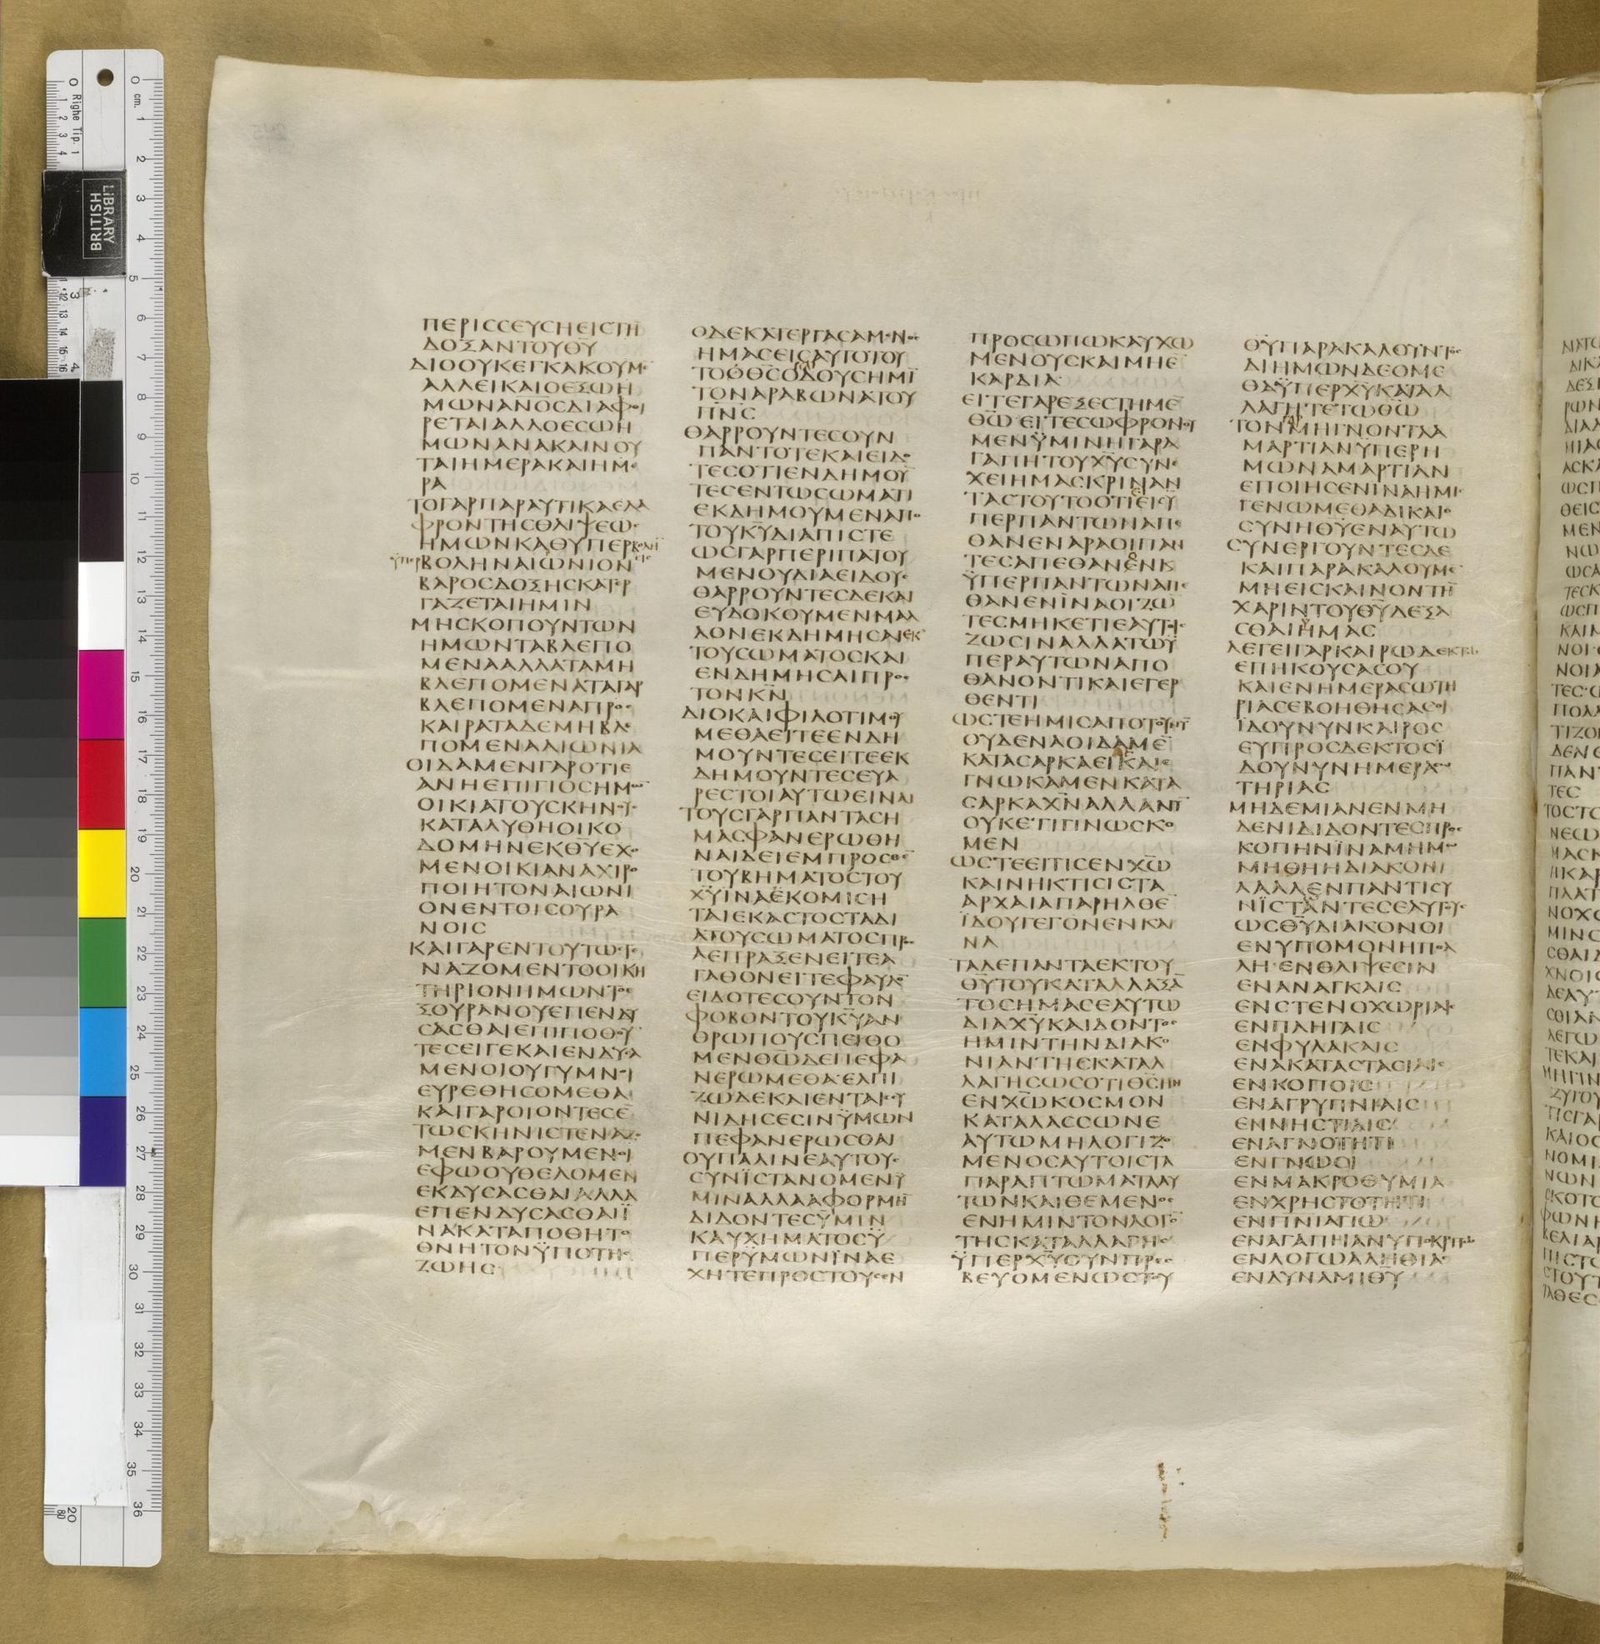 ΠΕΡΙϹϹΕΥϹΗΕΙϹΤΗ̅
ΔΟΞΑΝΤΟΥΘΥ̅
ΔΙΟΟΥΚΕΓΚΑΚΟΥΜΕ̅
ΑΛΛΕΙΚΑΙΟΕΞΩΗ
ΜΩΝΑΝΟ̅ϹΔΙΑΦΘΙ
ΡΕΤΑΙΑΛΛΟΕϹΩΗ
ΜΩΝΑΝΑΚΑΙΝΟΥ
ΤΑΙΗΜΕΡΑΚΑΙΗΜΕ
ΡΑ
ΤΟΓΑΡΠΑΡΑΥΤΙΚΑΕΛΑ
ΦΡΟΝΤΗϹΘΛΙΨΕΩϹ
ΗΜΩΝΚΑΘΥΠΕΡΒΟΛΗ̅
ΒΟΛΗΝΑΙΩΝΙΟΝ
ΒΑΡΟϹΔΟΞΗϹΚΑΤΕΡ
ΓΑΖΕΤΑΙΗΜΙΝ
ΜΗϹΚΟΠΟΥΝΤΩΝ
ΗΜΩΝΤΑΒΛΕΠΟ
ΜΕΝΑΑΛΛΑΤΑΜΗ
ΒΛΕΠΟΜΕΝΑΤΑΓΑΡ
ΒΛΕΠΟΜΕΝΑΠΡΟϹ
ΚΑΙΡΑΤΑΔΕΜΗΒΛΕ
ΠΟΜΕΝΑΑΙΩΝΙΑ
ΟΙΔΑΜΕΝΓΑΡΟΤΙΕ
ΑΝΗΕΠΙΓΙΟϹΗΜΩ̅
ΟΙΚΙΑΤΟΥϹΚΗΝΟΥϹ
ΚΑΤΑΛΥΘΗΟΙΚΟ
ΔΟΜΗΝΕΚΘΥΕΧΟ
ΜΕΝΟΙΚΙΑΝΑΧΙΡΟ
ΠΟΙΗΤΟΝΑΙΩΝΙ
ΟΝΕΝΤΟΙϹΟΥΡΑ
ΝΟΙϹ
ΚΑΙΓΑΡΕΝΤΟΥΤΩϹΤΕ
ΝΑΖΟΜΕΝΤΟΟΙΚΗ
ΤΗΡΙΟΝΗΜΩΝΤΟΕ
ΞΟΥΡΑΝΟΥΕΠΕΝΔΥ
ϹΑϹΘΑΙΕΠΙΠΟΘΟΥ
ΤΕϹΕΙΓΕΚΑΙΕΝΔΥϹΑ
ΜΕΝΟΙΟΥΓΥΜΝΟΙ
ΕΥΡΕΘΗϹΟΜΕΘΑ
ΚΑΙΓΑΡΟΙΟΝΤΕϹΕ
ΤΩϹΚΗΝΙϹΤΕΝΑΖΟ
ΜΕΝΒΑΡΟΥΜΕΝΟΙ
ΕΦΩΟΥΘΕΛΟΜΕΝ
ΕΚΔΥϹΑϹΘΑΙΑΛΛΑ
ΕΠΕΝΔΥϹΑϹΘΑΙΪ
ΝΑΚΑΤΑΠΟΘΗΤΟ
ΘΝΗΤΟΝΫΠΟΤΗϹ
ΖΩΗϹ
ΟΔΕΚΑΤΕΡΓΑϹΑΜΕΝΟϹ
ΗΜΑϹΕΙϹΑΥΤΟΤΟΥ
ΤΟΟΘ̅ϹΟΔΟΥϹΗΜΙ̅
ΤΟΝΑΡΑΒΩΝΑΤΟΥ
ΠΝ̅Ϲ
ΘΑΡΡΟΥΝΤΕϹΟΥΝ
ΠΑΝΤΟΤΕΚΑΙΕΙΔΟ
ΤΕϹΟΤΙΕΝΔΗΜΟΥ̅
ΤΕϹΕΝΤΩϹΩΜΑΤΙ
ΕΚΔΗΜΟΥΜΕΝΑΠΟ
ΤΟΥΚΥ̅ΔΙΑΠΙϹΤΕ
ΩϹΓΑΡΠΕΡΙΠΑΤΟΥ
ΜΕΝΟΥΔΙΑΕΙΔΟΥϹ
ΘΑΡΡΟΥΝΤΕϹΔΕΚΑΙ
ΕΥΔΟΚΟΥΜΕΝΜΑΛ
ΛΟΝΕΚΔΗΜΗϹΑΙΕΚ
ΤΟΥϹΩΜΑΤΟϹΚΑΙ
ΕΝΔΗΜΗϹΑΙΠΡΟϹ
ΤΟΝΚΝ̅
ΔΙΟΚΑΙΦΙΛΟΤΙΜΟΥ
ΜΕΘΑΕΙΤΕΕΝΔΗ
ΜΟΥΝΤΕϹΕΙΤΕΕΚ
ΔΗΜΟΥΝΤΕϹΕΥΑ
ΡΕϹΤΟΙΑΥΤΩΕΙΝΑΙ
ΤΟΥϹΓΑΡΠΑΝΤΑϹΗ
ΜΑϹΦΑΝΕΡΩΘΗ
ΝΑΙΔΕΙΕΜΠΡΟϹΘΕ̅
ΤΟΥΒΗΜΑΤΟϹΤΟΥ
ΧΥ̅ΙΝΑΕΚΟΜΙϹΗ
ΤΑΙΕΚΑϹΤΟϹΤΑΔΙ
ΑΤΟΥϹΩΜΑΤΟϹΠΡΟϹ
ΑΕΠΡΑΞΕΝΕΙΤΕΑ
ΓΑΘΟΝΕΙΤΕΦΑΥΛΟ̅
ΕΙΔΟΤΕϹΟΥΝΤΟΝ
ΦΟΒΟΝΤΟΥΚΥ̅ΑΝ
ΘΡΩΠΟΥϹΠΕΙΘΟ
ΜΕΝΘΩ̅ΔΕΠΕΦΑ
ΝΕΡΩΜΕΘΑΕΛΠΙ
ΖΩΔΕΚΑΙΕΝΤΑΙϹϹΥ
ΝΙΔΗϹΕϹΙΝΫΜΩΝ
ΠΕΦΑΝΕΡΩϹΘΑΙ
ΟΥΠΑΛΙΝΕΑΥΤΟΥϹ
ϹΥΝΪϹΤΑΝΟΜΕΝΫ
ΜΙΝΑΛΛΑΑΦΟΡΜΗ̅
ΔΙΔΟΝΤΕϹΫΜΙΝ
ΚΑΥΧΗΜΑΤΟϹΫ
ΠΕΡΫΜΩΝΪΝΑΕ
ΧΗΤΕΠΡΟϹΤΟΥϹΕΝ
ΠΡΟϹΩΠΩΚΑΥΧΩ
ΜΕΝΟΥϹΚΑΙΜΗΕ̅
ΚΑΡΔΙΑ
ΕΙΤΕΓΑΡΕΞΕϹΤΗΜΕ̅
ΘΩ̅ΕΙΤΕϹΩΦΡΟΝΟΥ
ΜΕΝΫΜΙΝΗΓΑΡΑ
ΓΑΠΗΤΟΥΧΥ̅ϹΥΝΕ
ΧΕΙΗΜΑϹΚΡΙΝΑΝ
ΤΑϹΤΟΥΤΟΟΤΙΕΙϹΫ
ΠΕΡΠΑΝΤΩΝΑΠΕ
ΘΑΝΕΝΑΡΑΟΙΠΑΝ
ΤΕϹΑΠΕΘΑΝΟΝΚ
ΫΠΕΡΠΑΝΤΩΝΑΠΕ
ΘΑΝΕΝΪΝΑΟΙΖΩ̅
ΤΕϹΜΗΚΕΤΙΕΑΥΤΟΙϹ
ΖΩϹΙΝΑΛΛΑΤΩΫ
ΠΕΡΑΥΤΩΝΑΠΟ
ΘΑΝΟΝΤΙΚΑΙΕΓΕΡ
ΘΕΝΤΙ
ΩϹΤΕΗΜΙϹΑΠΟΤΟΥΝΥ̅
ΟΥΔΕΝΑΟΙΔΑΜΕ̅
ΚΑΤΑϹΑΡΚΑΕΙΚΑΙΕ
ΓΝΩΚΑΜΕΝΚΑΤΑ
ϹΑΡΚΑΧΝ̅ΑΛΛΑΝΥ̅
ΟΥΚΕΤΙΓΙΝΩϹΚΟ
ΜΕΝ
ΩϹΤΕΕΙΤΙϹΕΝΧΩ̅
ΚΑΙΝΗΚΤΙϹΙϹΤΑ
ΑΡΧΑΙΑΠΑΡΗΛΘΕ̅
ΪΔΟΥΓΕΓΟΝΕΝΚΑΙ
ΝΑ
ΤΑΔΕΠΑΝΤΑΕΚΤΟΥ
ΘΥ̅ΤΟΥΚΑΤΑΛΛΑΞΑ̅
ΤΟϹΗΜΑϹΕΑΥΤΩ
ΔΙΑΧΥ̅ΚΑΙΔΟΝΤΟϹ
ΗΜΙΝΤΗΝΔΙΑΚΟ
ΝΙΑΝΤΗϹΚΑΤΑΛ
ΛΑΓΗϹΩϹΟΤΙΘϹ̅ΗΝ
ΕΝΧΩ̅ΚΟϹΜΟΝ
ΚΑΤΑΛΑϹϹΩΝΕ
ΑΥΤΩΜΗΛΟΓΙΖΟ
ΜΕΝΟϹΑΥΤΟΙϹΤΑ
ΠΑΡΑΠΤΩΜΑΤΑΑΥ
ΤΩΝΚΑΙΘΕΜΕΝΟϹ
ΕΝΗΜΙΝΤΟΝΛΟΓΟ̅
ΤΗϹΚΑΤΑΛΛΑΓΗϹ
ΫΠΕΡΧΥ̅ΟΥΝΠΡΕϹ
ΒΕΥΟΜΕΝΩϹΤΟΥ
ΘΥ̅ΠΑΡΑΚΑΛΟΥΝΤΟϹ
ΔΙΗΜΩΝΔΕΟΜΕ
ΘΑΫΠΕΡΧΥ̅ΚΑΤΑΛ
ΛΑΓΗΤΕΤΩΘΩ̅
ΤΟΝΜΗΓΝΟΝΤΑΑ
ΜΑΡΤΙΑΝΫΠΕΡΗ
ΜΩΝΑΜΑΡΤΙΑΝ
ΕΠΟΙΗϹΕΝΙΝΑΗΜΙϹ
ΓΕΝΩΜΕΘΑΔΙΚΑΙΟ
ϹΥΝΗΘΥ̅ΕΝΑΥΤΩ
ϹΥΝΕΡΓΟΥΝΤΕϹΔΕ
ΚΑΙΠΑΡΑΚΑΛΟΥΜΕ̅
ΜΗΕΙϹΚΑΙΝΟΝΤΗ̅
ΧΑΡΙΝΤΟΥΘΥ̅ΔΕΞΑ
ϹΘΑΙΗΜΑϹ
ΛΕΓΕΙΓΑΡΚΑΙΡΩΔΕΚΤΩ
ΕΠΗΚΟΥϹΑϹΟΥ
ΚΑΙΕΝΗΜΕΡΑϹΩΤΗ
ΡΙΑϹΕΒΟΗΘΗϹΑϹΟΙ
ΪΔΟΥΝΥΝΚΑΙΡΟϹ
ΕΥΠΡΟϹΔΕΚΤΟϹΪ
ΔΟΥΝΥΝΗΜΕΡΑϹΩ
ΤΗΡΙΑϹ
ΜΗΔΕΜΙΑΝΕΝΜΗ
ΔΕΝΙΔΙΔΟΝΤΕϹΠΡΟϹ
ΚΟΠΗΝΪΝΑΜΗΜΩ
ΜΗΘΗΗΔΙΑΚΟΝΙ
ΑΑΛΛΕΝΠΑΝΤΙϹΥ
ΝΪϹΤΑΝΤΕϹΕΑΥΤΟΥϹ
ΩϹΘΥ̅ΔΙΑΚΟΝΟΙ
ΕΝΥΠΟΜΟΝΗΠΟΛ
ΛΗΕΝΘΛΙΨΕϹΙΝ
ΕΝΑΝΑΓΚΑΙϹ
ΕΝϹΤΕΝΟΧΩΡΙΑΙϹ
ΕΝΠΛΗΓΑΙϹ
ΕΝΦΥΛΑΚΑΙϹ
ΕΝΑΚΑΤΑϹΤΑϹΙΑΙϹ
ΕΝΚΟΠΟΙϹ
ΕΝΑΓΡΥΠΝΙΑΙϹ
ΕΝΝΗϹΤΙΑΙϹ
ΕΝΑΓΝΟΤΗΤΙ
ΕΝΓΝΩϹΙ
ΕΝΜΑΚΡΟΘΥΜΙΑ
ΕΝΧΡΗϹΤΟΤΗΤΙ
ΕΝΠΝΙΑΓΙΩ
ΕΝΑΓΑΠΗΑΝΥΠΟΚΡΙΤΩ
ΕΝΛΟΓΩΑΛΗΘΙΑϹ
ΕΝΔΥΝΑΜΙΘΥ̅